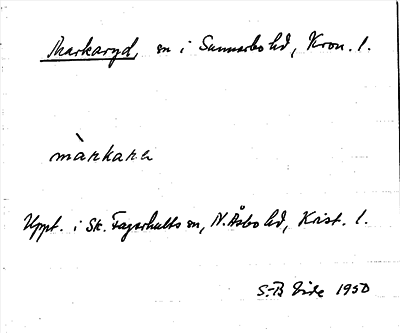 Markaryd, sn i Sunnerbo hd, Kron. l.
màrkara
Uppt. i Sk. Fagerhults sn, N. Åsbo hd, Krist. l.
S-B Vide 1950